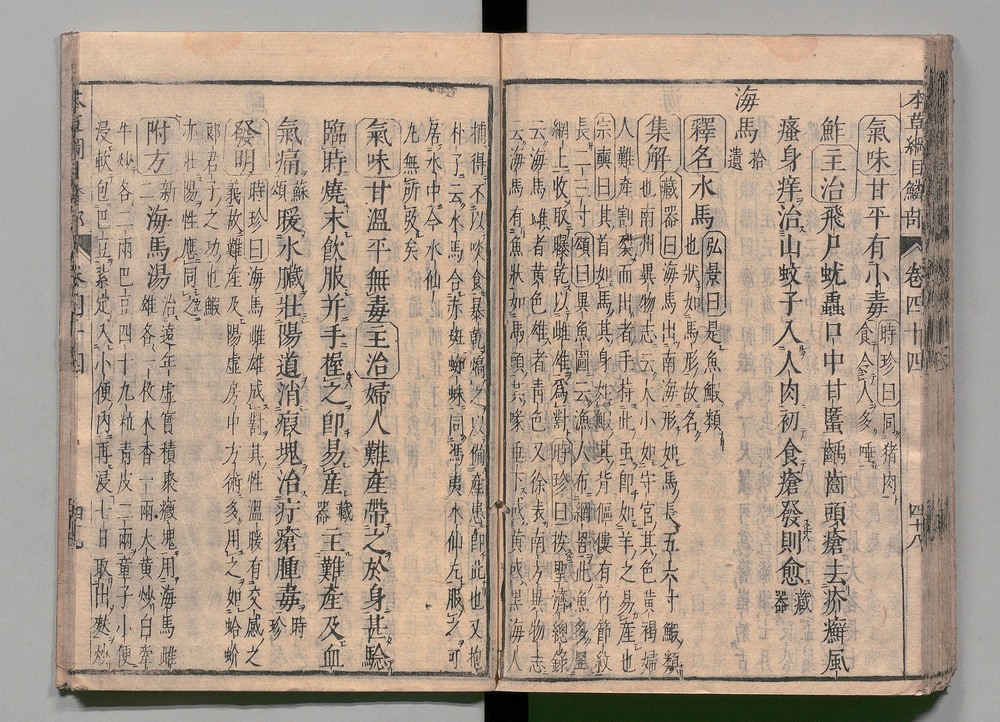 本草綱目鱗部 卷四十四 四十八
氣味甘平有小毒時珍曰同猪肉食令人多唾
鮓主治飛尸蚘蟲口中甘䘌齲齒頭瘡去瘀癬風
瘙身痒治山蚊子入人肉初食瘡發則愈藏器
海馬拾遺
釋名水馬弘景曰是魚鰕類也狀如馬形故名
集解藏器曰海馬出南海形如馬長五六寸鰕類也南州異物志云大小如守宮其色黃褐婦
人難産割裂而出者手持此虫即如羊之易産也
宗奭曰其首如馬其身如鰕其背傴僂有竹節紋
長二三寸頌曰異魚圖云漁人布網罟此魚多罣
網上收取曝乾以雌雄爲對時珍曰按聖濟總錄
云海馬雌者黃色雄者青色又徐表南方異物志
云海有魚狀如馬頭其喙垂下或黃或黑海人
捕得不以啖食暴乾熇之以備産患即此也又抱
朴子云水馬合赤斑蜘蛛同馮夷水仙丸服之可
居水中今水仙
丸無所攷矣
氣味甘溫平無毒主治婦人難産帶之於身甚驗
臨時燒末飲服并手握之即易産藏器主難産及血
氣痛蘇頌暖水臟壯陽道消瘕塊治疔瘡腫毒時珍
發明時珍曰海馬雌雄成對其性溫暖有交感之義故難産及陽虛房中方術多用之如蛤蚧
郎君子之功也鰕
亦壯陽性應同之
附方新二海馬湯治遠年虛實積聚癥塊用海馬雌雄各一枚木香一兩大黃炒白牽
牛炒各二兩巴豆四十九粒青皮二兩童子小便
浸軟包巴豆紮定入小便內再浸七日取出麩炒
本草綱目鱗部 卷四十四 四十九